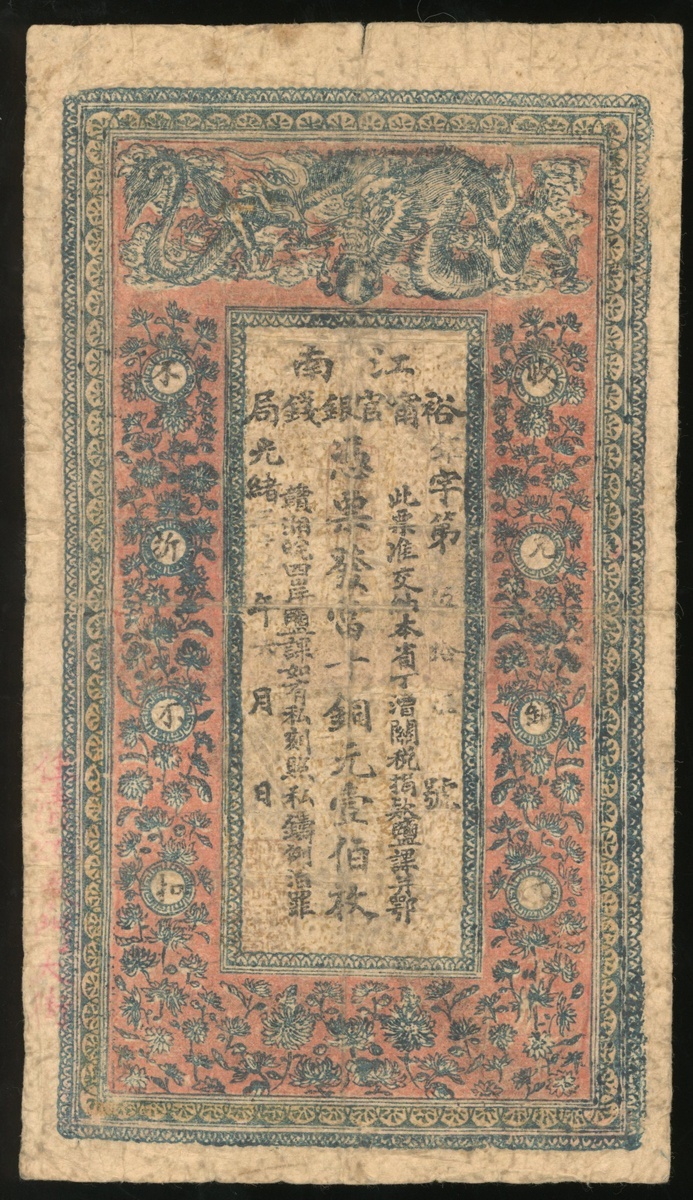 江南
裕甯官銀錢局
字第伍拾號
此票准交納本省丁漕關稅捐款鹽課并鄂
憑票發當十銅元壹佰枚
贛湘皖四岸鹽課如有私刻照私鑄例治罪
光緒年月日
收
允
不
折
不
扣